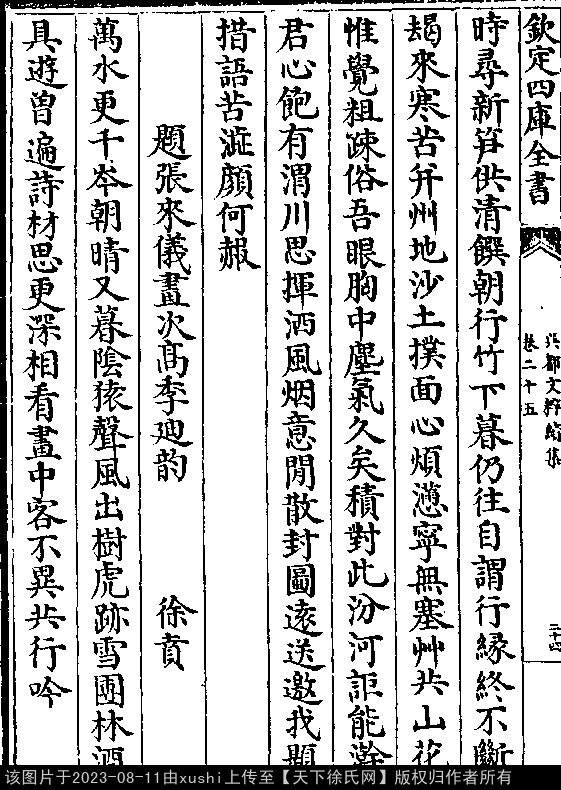 欽定四庫全書
卷二十五
二十四
時尋新笋供清饌朝行竹下暮仍往自謂行縁終不斷
朅來寒苦并州地沙土撲面心煩懣寧無塞艸共山花
惟覺粗疎俗吾眼胸中塵氣久矣積對此汾河詎能澣
君心飽有渭川思揮洒風烟意閒散封圖逺送邀我題
措語苦澁顔何赧
題張來儀畫次髙季廸韵
徐賁
萬水更千岑朝晴又暮陰猿聲風出樹虎跡雪團林酒
具遊曽遍詩材思更深相看畫中客不異共行吟
该图片于2023-08-11由xushi上传至【天下徐氏网】版权归作者所有